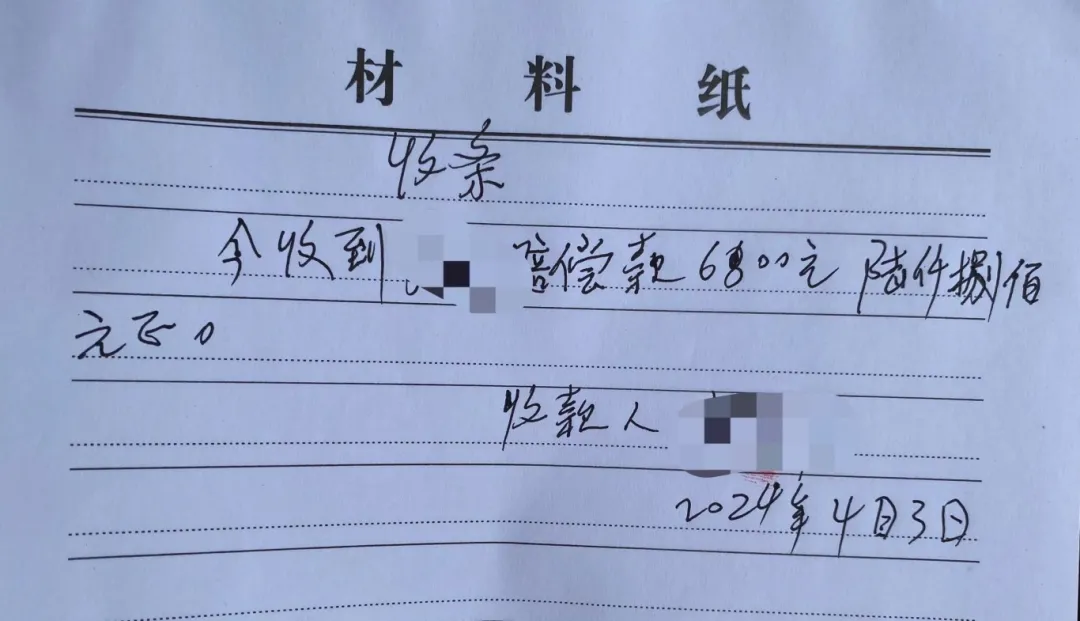 材料纸
收条
今收到 赔偿款6800元 陆仟捌佰
元正。
收款人
2024年4月3日